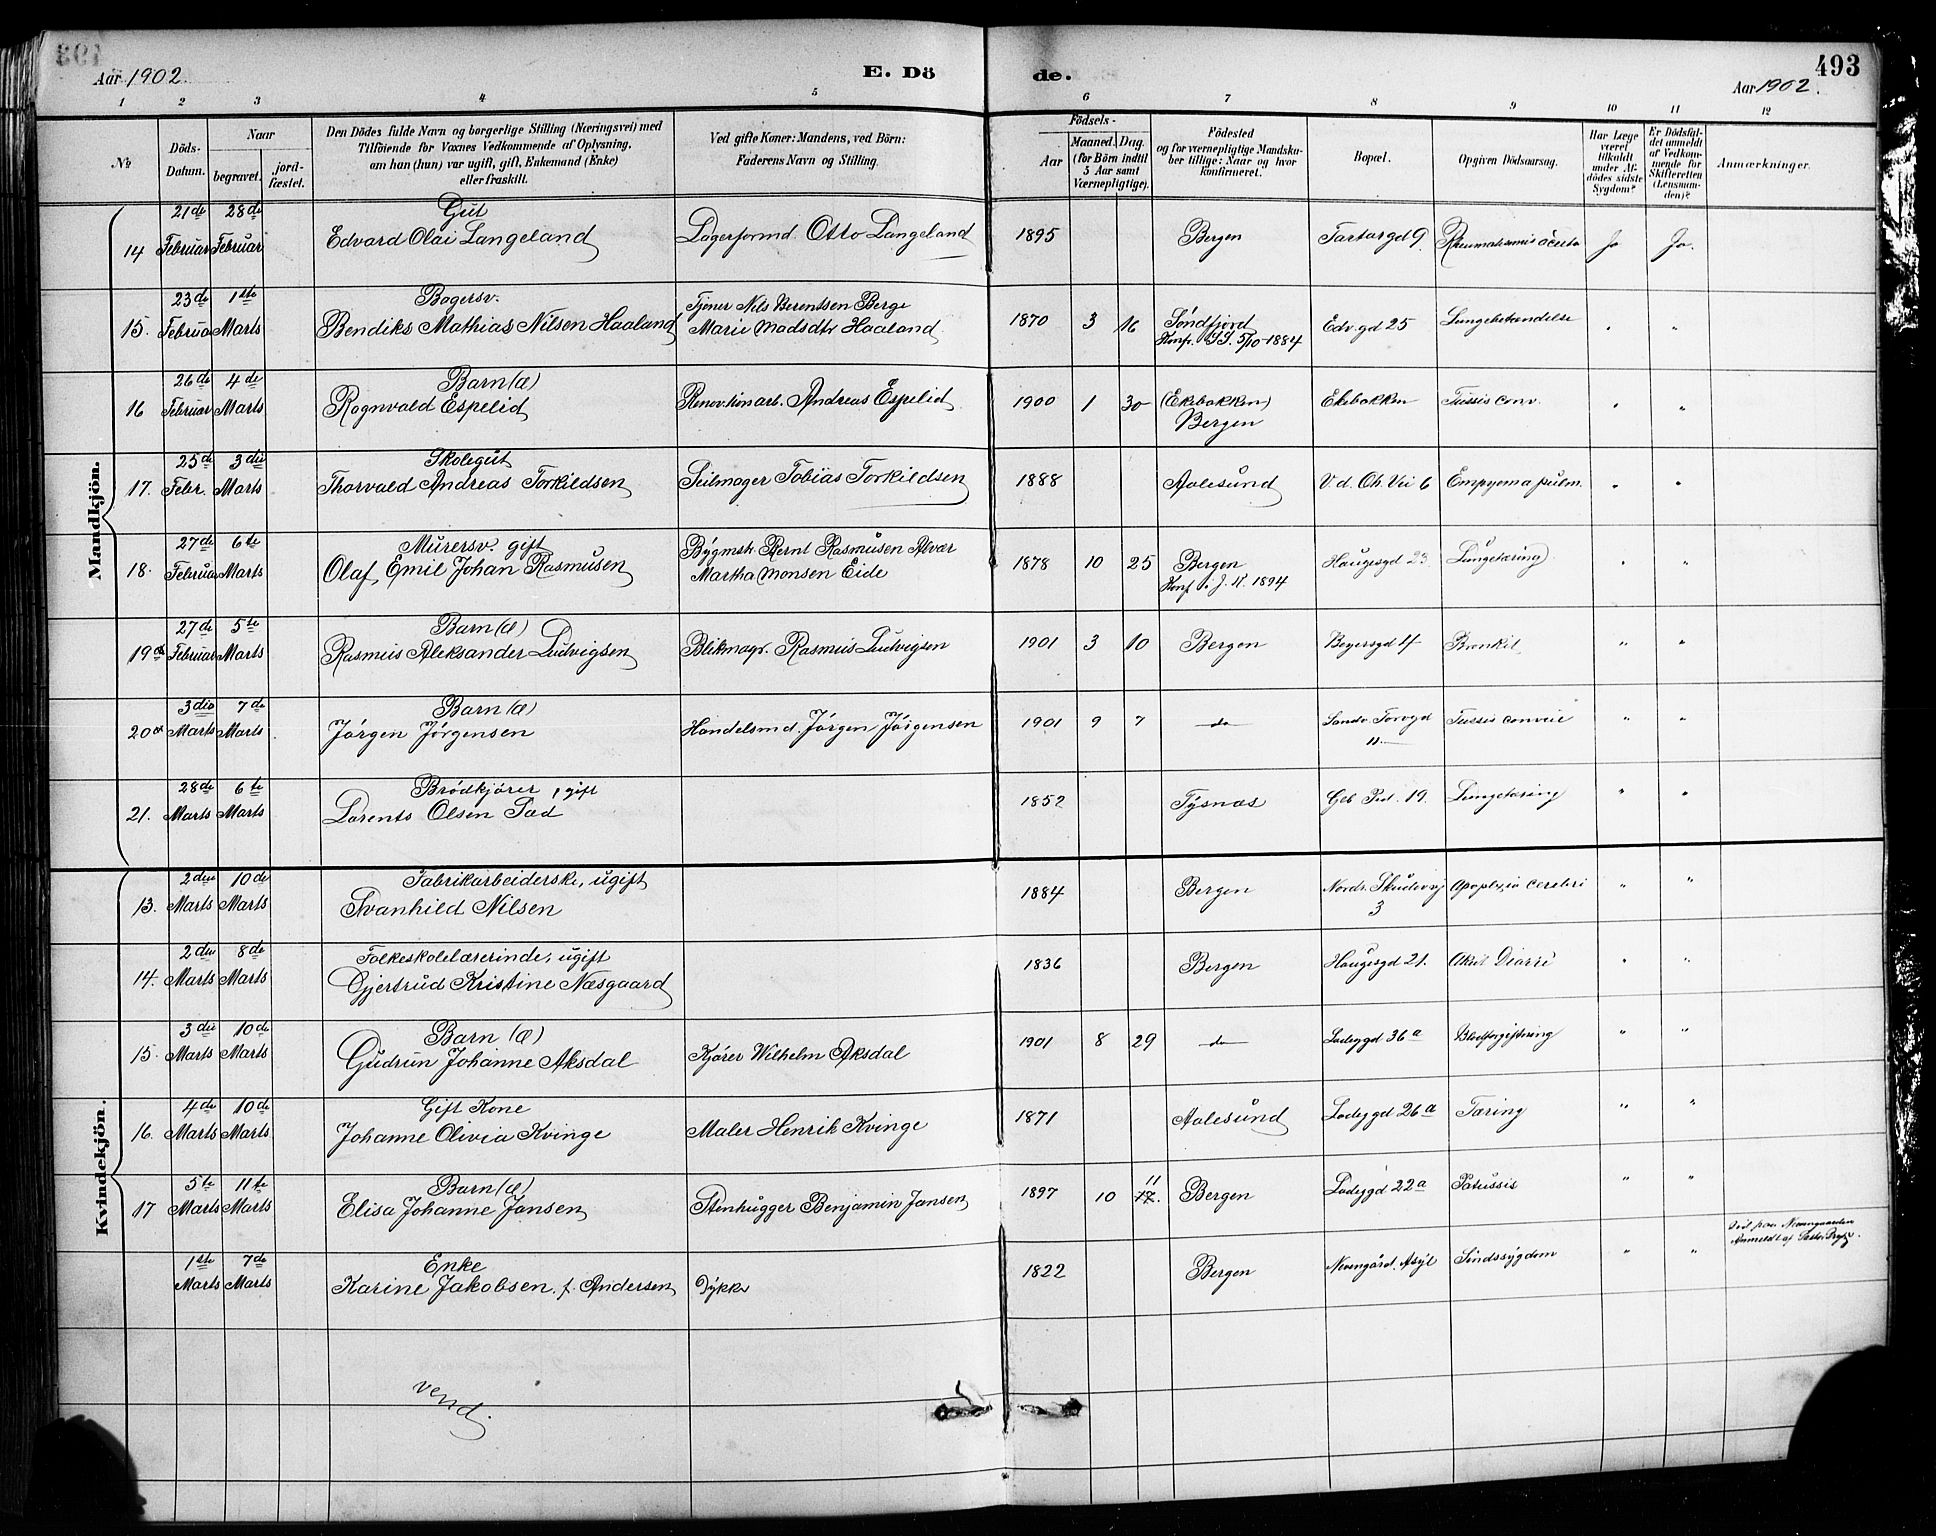 Aar 1902.
E. Dö
de.
493
Aar 1902.
1 2 3 4 5 6 7 8 9 10 11 12
No
Döds-Datum.
Naar
begravet.
jord-fæstet.
Den Dödes fulde Navn og borgerlige Stilling (Næringsvei) med
Tilföiende for Voxnes Vedkommende af Oplysning,
om han (hun) var ugift, gift, Enkemand (Enke)
eller fraskilt.
Ved gifte Koner: Mandens, ved Börn:
Faderens Navn og Stilling.
Födsels-
Aar
Maaned. Dag.
(for Börn indtil
5 Aar samt
Værnepligtige).
Födested
og for værnepligtige Mandska-
ber tillige: Naar og hvor
konfirmeret.
Bopæl.
Opgiven Dödsaarsag.
Har Læge
været
tilkaldt
under Af-
dödes sidste
Sygdom?
Er Dödsfal-
det anmeldt
af Vedkom-
mende for
Skifteretten
(Lensman-
den)?
Anmærkninger.
Mandkjön.
14 21de Februar 28de Februar Gut
Edvard Olai Langeland Lagerformd. Otto Langeland 1895 Bergen Tartargd 9 Rheumatismus Ja Ja.
15. 23de Februa 1ste Marts Bagersv.
Bendiks Mathias Nilsen Haaland Tjener Nils Berentsen Berge
Marie Madsdtr Haaland 1870 3 16 Söndfjord
Konf. 5/10-1884 Edv. gd 25 Lungebetændelse " "
16 26de Februar 4de Marts Barn (æ)
Rognvald Espelid Renovtionarb. Andreas Espelid 1900 1 30 (Ekebakken)
Bergen Ekebakken Tussis conv. " "
17. 25de Febr. 3die Marts Skolegut
Thorvald Andreas Torkildsen Seilmager Tobias Torkildsen 1888 Aalesund V. d. Ch. Vei 6 Empyema pulm. " "
18. 27de Februar 6te Marts Murersv. gift
Olaf Emil Johan Rasmusen Bygmstr. Bernt Rasmusen Alvær
Martha Monsen Eide 1878 10 25 Bergen
Konf. i J. K. 1894 Haugesgd 23 Lungetæring " "
19 27de Februar 5te Marts Barn (æ)
Rasmus Aleksander Ludvigsen Blikmagr. Rasmus Ludvigsen 1901 3 10 Bergen Beyersgd 4 Bronkit " "
20 3die Marts 7de Marts Barn (æ)
Jörgen Jörgensen Handelsmd. Jörgen Jörgensen 1901 9 7 do Sandv. Torvgd
11 Tussis " "
21. 28de Marts 6te Marts Brödkjörer, gift
Lorents Olsen Sæd 1852 Tysnæs Geb Præd. 19. Lungetæring " "
Kvindekjön.
13. 2den Marts 10de Marts Fabrikarbeiderske, ugift
Svanhild Nilsen 1884 Bergen Nordr. Skudevg
3 Apoplexia cerebri " "
14. 2den Marts 8de Marts Folkeskolelærerinde, ugift
Gjertrud Kristine Næsgaard 1836 Bergen Haugesgd 21. Akut Diarré " "
15. 3die Marts 10de Marts Barn (æ)
Gudrun Johanne Aksdal Kjörer Wilhelm Aksdal 1901 8 29 do Ladeggd 36a Blodforgiftning " "
16. 4de Marts 10de Marts Gift Kone
Johanne Olivia Kvinge Maler Henrik Kvinge 1871 Aalesund Ladeggd 26a Tæring " "
17 5te Marts 11te Marts Barn (æ)
Elisa Johanne Jansen Stenhugger Benjamin Jansen 1897 10 11 Bergen Ladeggd 22a Patussis " "
1ste Marts 7de Marts Enke
Karine Jakobsen. f. Andersen Dykker 1822 Bergen Neevengård. Asyl Sindssygdom " "
vend.